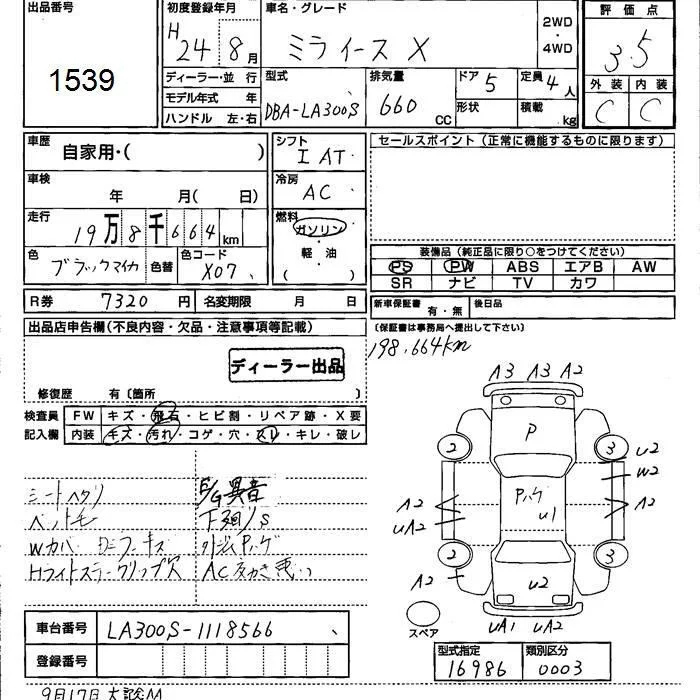 出品番号
1539
初度登録年月
H 24 8月
車名・グレード
ミライース X
2WD
・
4WD
評価点
3.5
外装 内装
C C
ディーラー・並行
モデル年式 年
ハンドル 左・右
型式
DBA-LA300S
排気量
660 CC
ドア 5
形状
定員 4人
積載 kg
車歴
自家用・( )
車検
年 月( 日)
走行
19万8千664km
色
ブラックマイカ
色替
色コード
X07
シフト
I AT
冷房
AC
燃料
ガソリン
・
軽・油
( )
セールスポイント(正常に機能するものに限ります)
装備品(純正品に限り○をつけてください)
PS PW ABS エアB AW
SR ナビ TV カワ
R券 7320円 名変期限 月 日
新車保証書 有・無 後日品
(保証書は事務局へ提出して下さい)
出品店申告欄(不良内容・欠品・注意事項等記載)
ディーラー出品
修復歴 有〔箇所 〕
198,664km
検査員 記入欄
FW キズ・飛石・ヒビ割・リペア跡・X要
内装 キズ・汚れ・コゲ・穴・スレ・キレ・破レ
シートヘタリ
E/G異音
ペットモ
下廻/S
Wカバー
キズ
外装Pハゲ
Hライトステーグリップ穴
AC効き悪い
A3 A3 A2
P
2 3
U2
W2
Pハゲ
U1
A2
UA2
A2
2 3
A2
U2
スペア
UA1 UA2
車台番号 LA300S-1118566
登録番号
型式指定 類別区分
16986 0003
9月17日